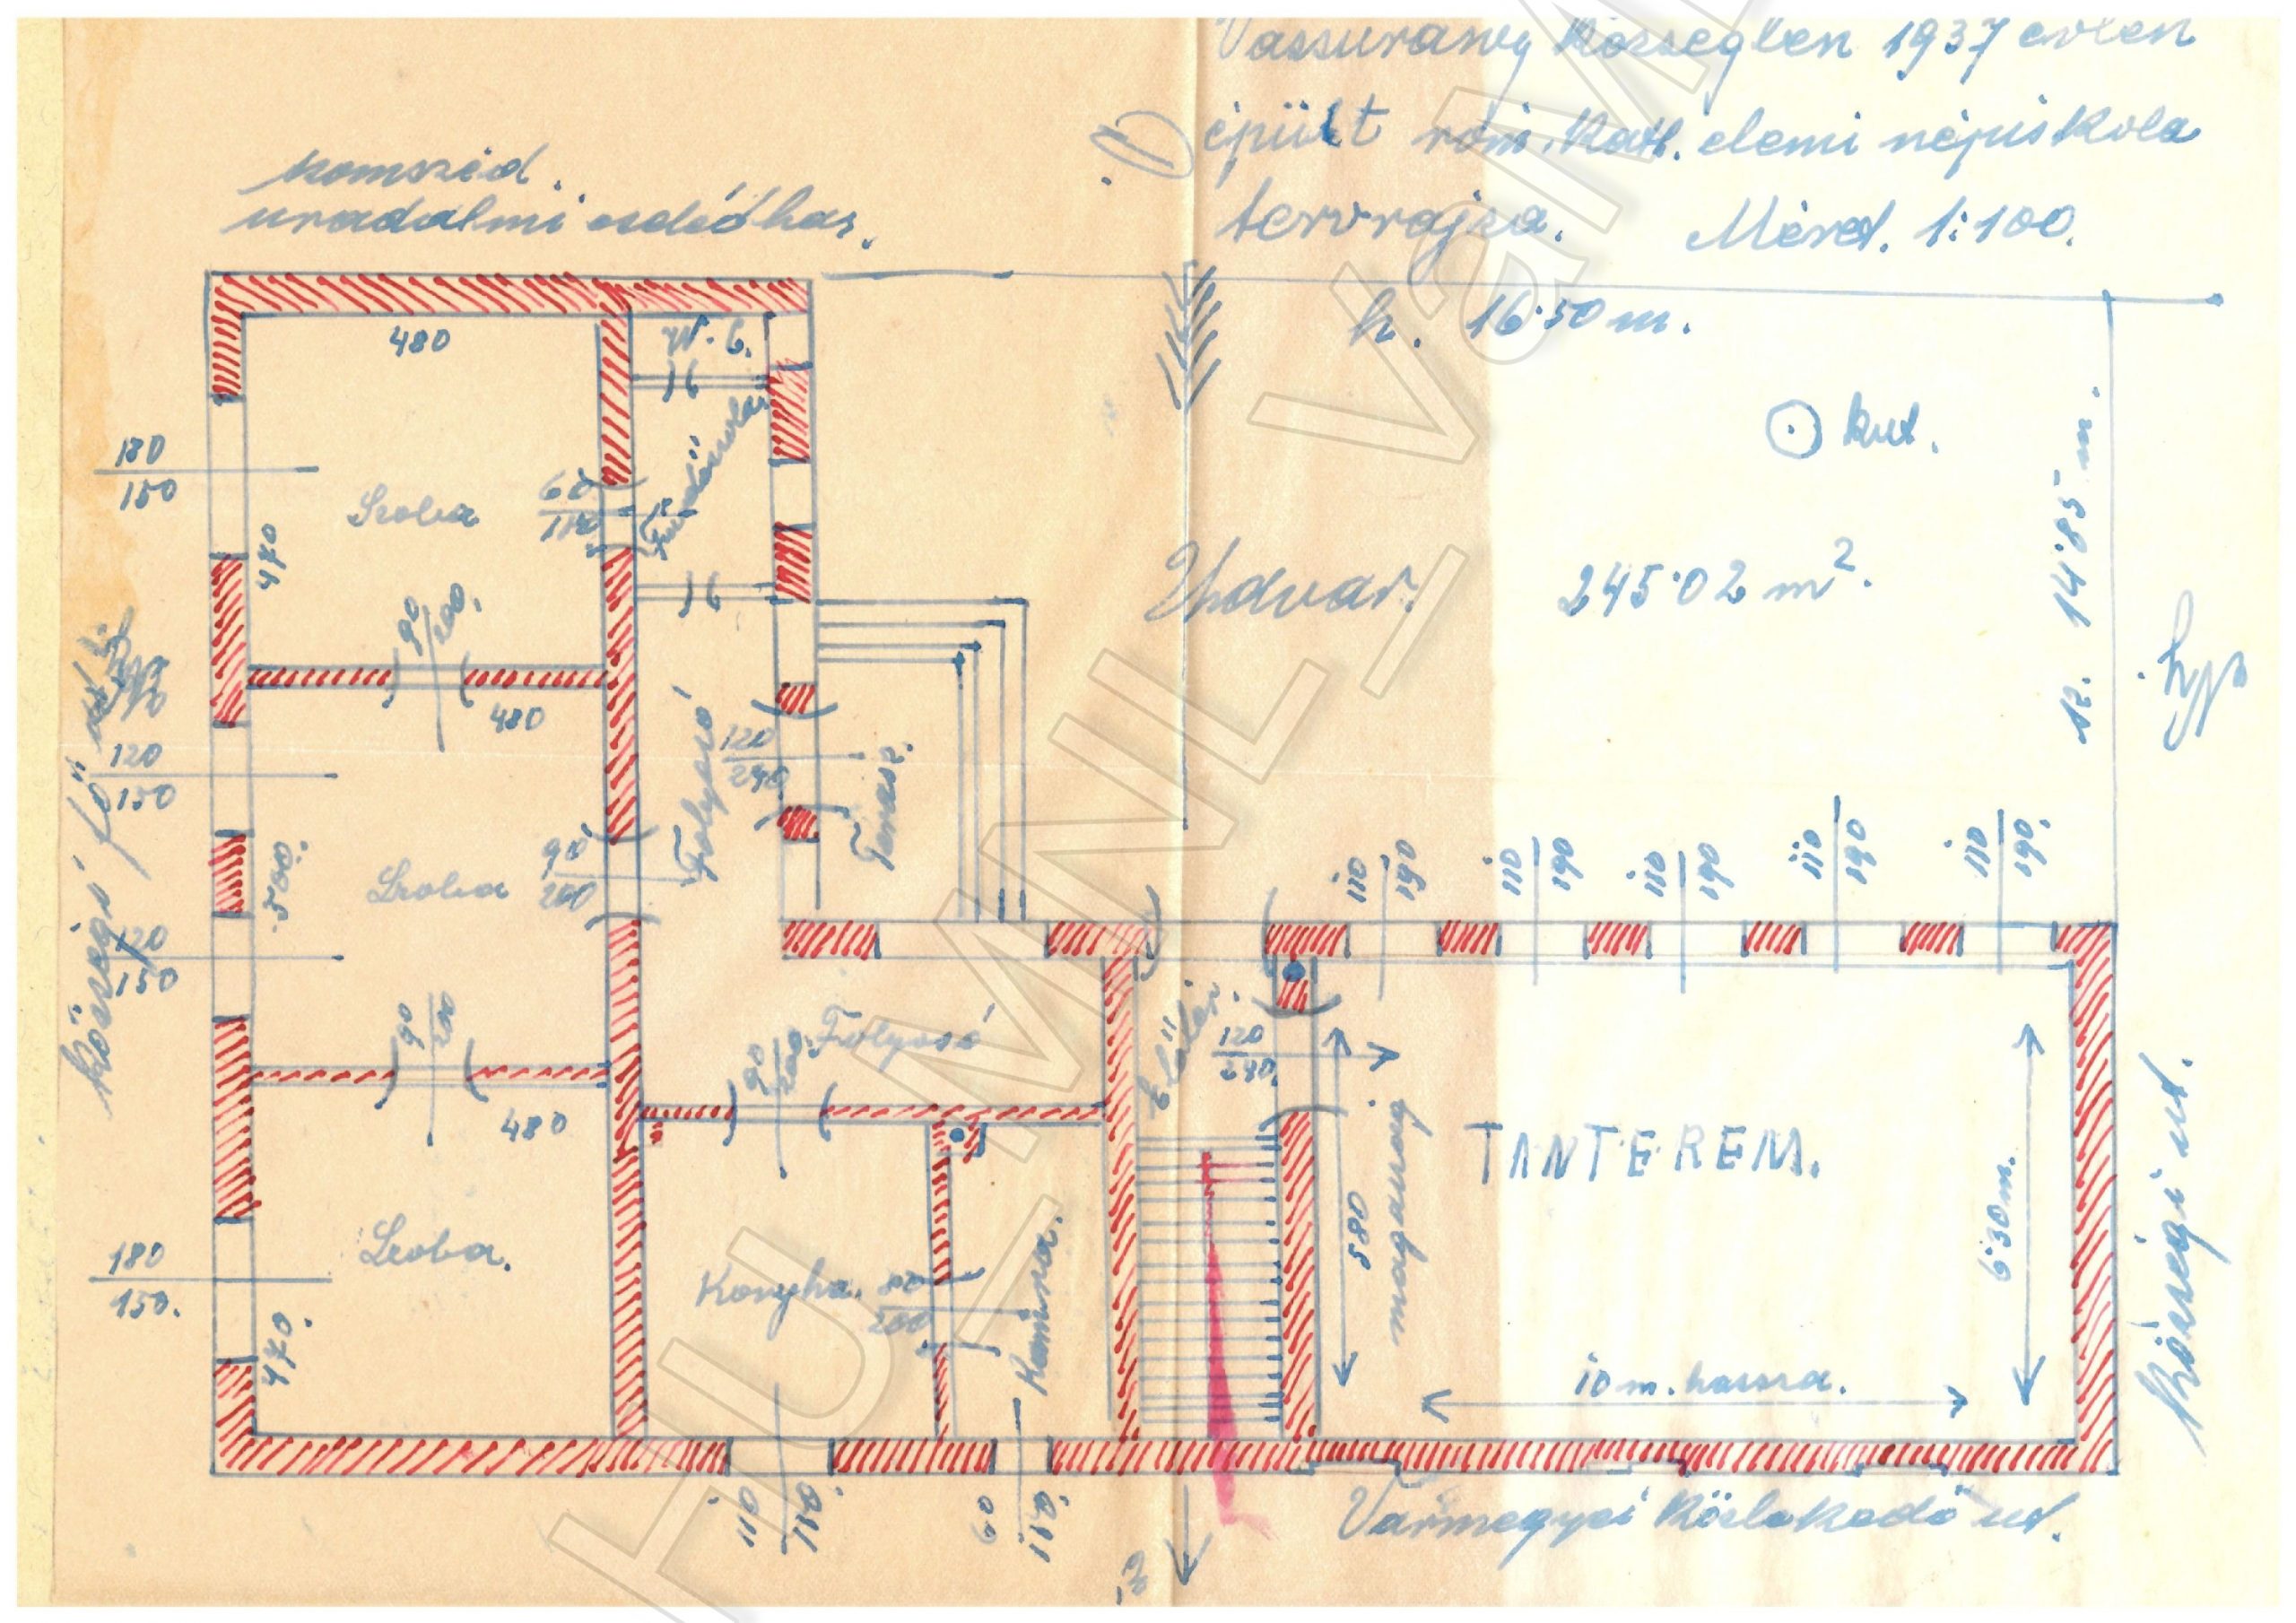 Vassurány községben 1937 évben
épült róm. kath. elemi népiskola
tervrajza. Méret. 1:100.
szomszéd.
uradalmi cselédház.
h. 16·50 m.
480
W.C.
kut.
180
150
Szoba
60
110
Fürdőszoba
470
Udvar.
245·02 m².
sz. 14·85 m.
90
200.
480
120
150
Folyosó
120
240
Terasz.
községi fő
Szoba
90
200
500.
110
190
110
190
110
190
110
190
110
190.
120
150
90
200
Folyosó
90
200.
Előtér.
120
240.
480
TANTEREM.
580
magasság
6·30 m.
Községi ut.
Szoba.
180
150.
470.
Konyha.
80
200
Kamra.
10 m. hossza.
110
110.
60
110.
Vármegyei közlekedő ut.
É.
HU_MNL_VaML